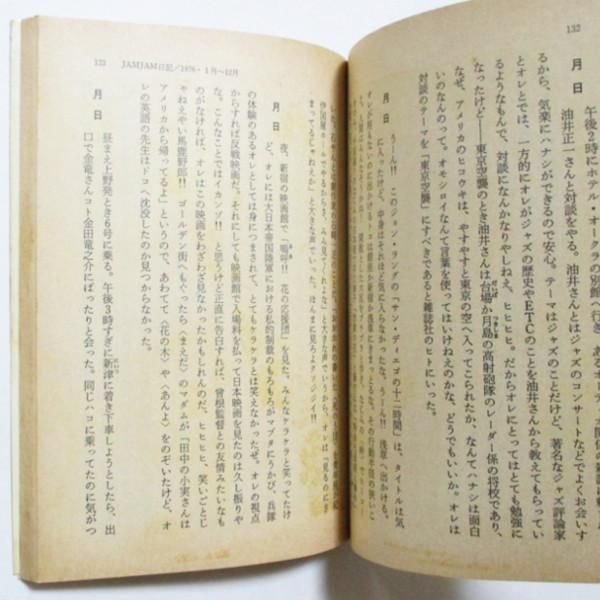 132
月 日
午後2時にホテル・オークラの別館へ
油井正一さんと対談をやる。油井正一さんとはジャズのコンサートなどでよくお会いす
るから、気楽にハナシができるので安心。テーマはジャズのことだけど、著名なジャズ評論家
とオレとでは、一方的にオレがジャズの歴史やETCのことを油井さんから教えてもらってい
るようなもんで、対談になんかなりやしねえ、ヒヒヒヒ。だからオレにとってはとても勉強に
なったけど──東京空襲のとき油井さんは台場か月島の高射砲隊のレーダー係の将校であり、
なぜ、アメリカのヒコウキは、やすやすと東京の空へ入ってこられたか、なんてハナシは面白
いのなんのって。オモシロイなんて言葉を使ってはいけねえのかな、どうでもいい。オレは
対談のテーマを「東京空襲」にすべきであると雑誌社のヒトにいった。
月 日
うーん!! このジョン・ランダの「サン・ディエゴの十二時間」は、タイトルは気
に入ったけど、中身はそれほど気に入らなかったな、うーん!! 浅草へ出かける。
133 JAMJAM日記/1976・1月〜12月
まってるじゃねえか」と大きな声でいった。ほんまに見ろよクソジジイ!!
月 日
夜、新宿の映画館で「嗚呼!! 花の応援団」を見た。みんなゲラゲラと笑ってたけ
ど、オレには大日本帝国陸軍における私的制裁のもろもろがマブタにうかび、兵隊
の体験のあるオレとしては身につまされて、とてもゲラゲラとは笑えなかったぜ。オレの視点
からすれば反戦映画だ。それにしても映画館で入場料を払って日本映画を見たのは久し振りや
な。こんなことではイカンゾ!! と思うけど正直に告白すれば、曾根監督との友情みたいなも
のがなければ、オレはこの映画をわざわざ見なかったかもしれんのだ。ヒヒヒヒ、笑いごとじ
ゃねえやい馬鹿野郎!! ゴールデン街へもぐったら〈まえだ〉のマダムが「田中の小実さんは
アメリカから帰ってるよ」というので、あわてて〈花の木〉や〈あんよ〉をのぞいたけど、オ
レの英語の先生はドコへ沈没したのか見つからなかった。
月 日
昼まえ上野発とき6号に乗る。午後3時すぎに新津に着き下車しようとしたら、出
口で金竜さんコト金田竜之介にばったりと会った。同じハコに乗ってたのに気がつ